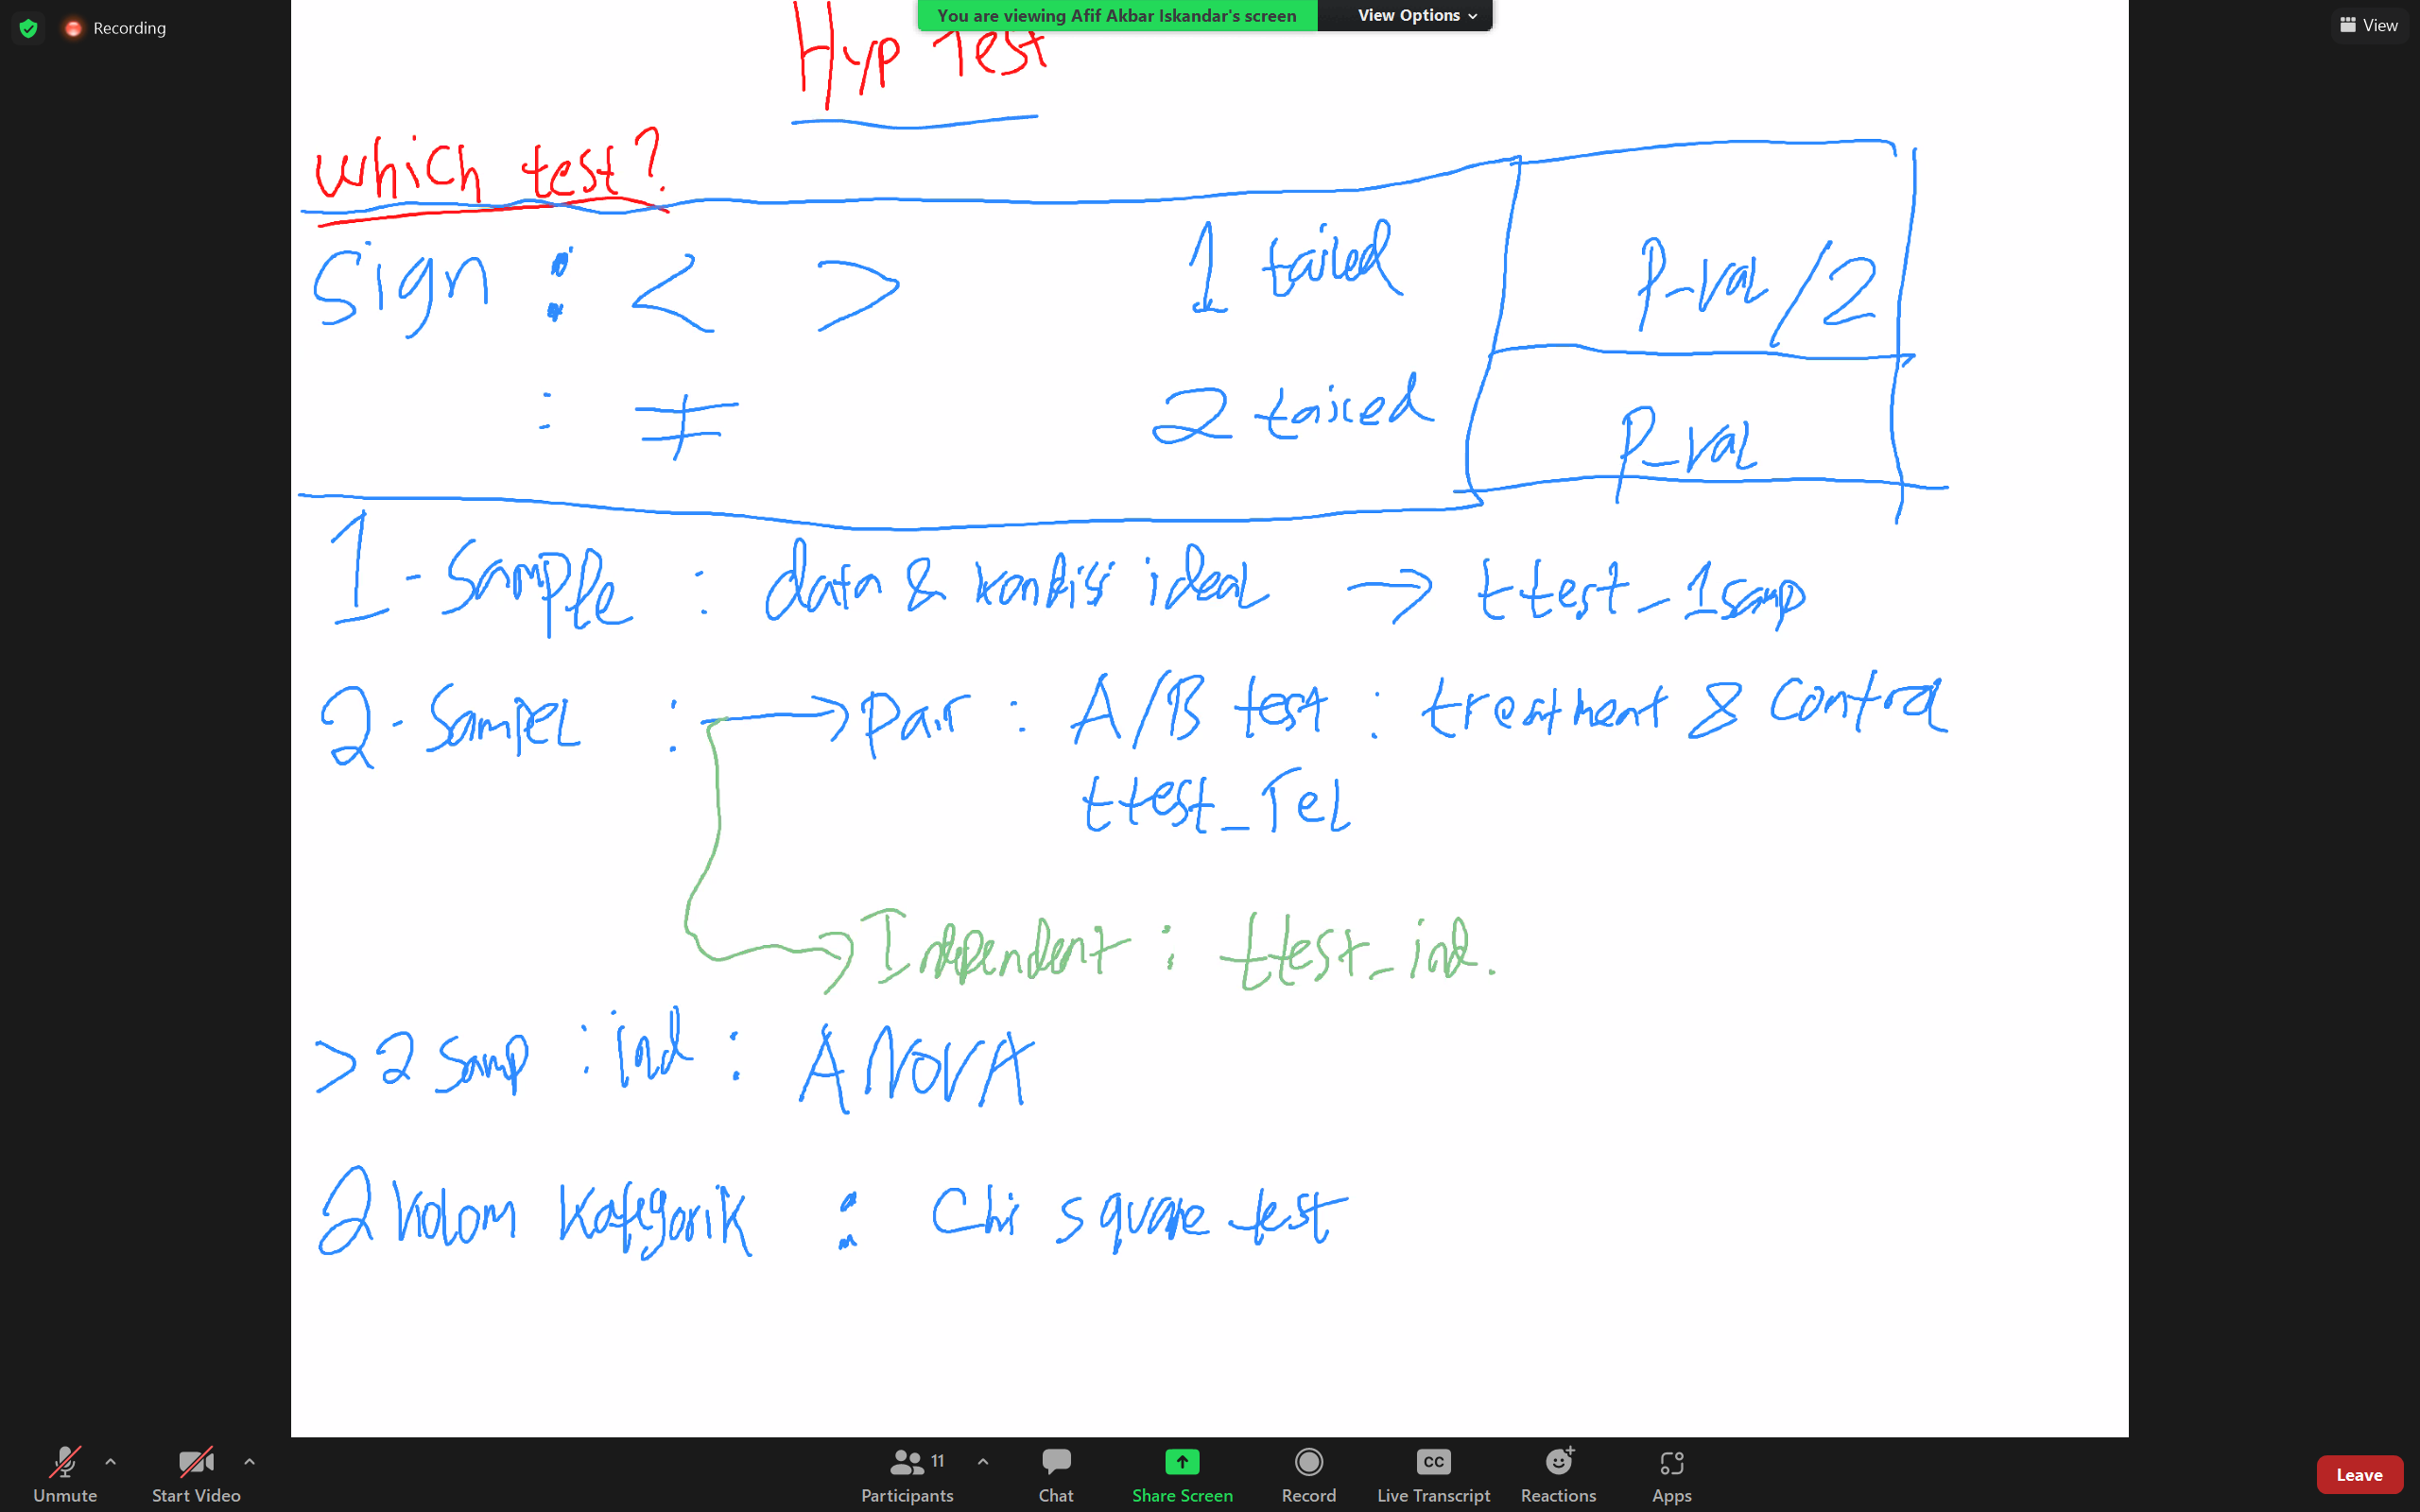 You are viewing Afif Akbar Iskandar's screen View Options
Recording
View
Hyp Test
which test?
Sign : < > 1 tailed P-val/2
: ≠ 2 tailed P-val
1-Sample : data & kondisi ideal → ttest_1samp
2-Sampel : → Pair : A/B test : treatment & Control
ttest_rel
→ Independent : ttest_ind.
>2 samp : ind : ANOVA
2 kolom kategorik : Chi square test
Unmute
Start Video
Participants 11
Chat
Share Screen
Record
CC
Live Transcript
Reactions
Apps
Leave